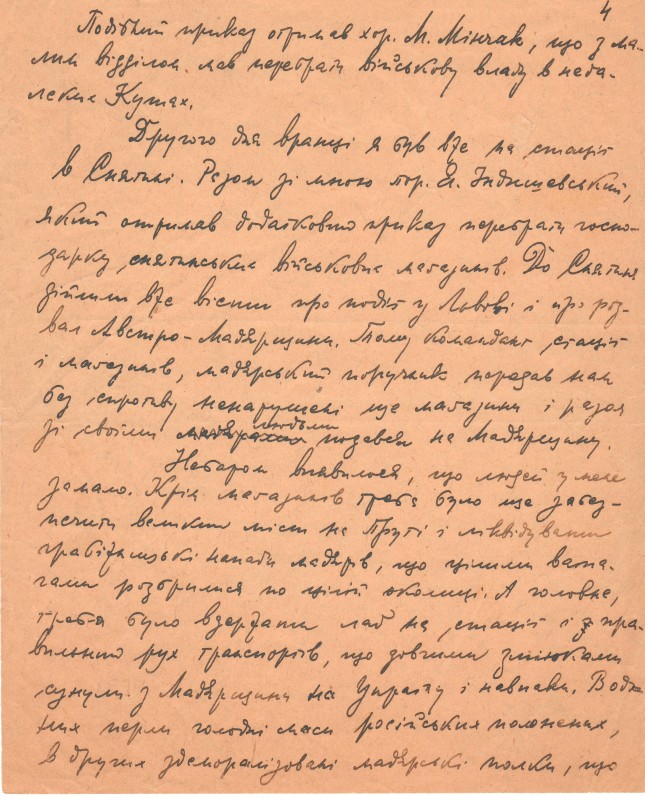 4
Подібний приказ отримав хор. М. Мінчак, що з ма-
лим відділом мав перебрати військову владу в неда-
леких Кутах.
Другого дня вранці я був вже на стації
в Снятині. Разом зі мною пор. Я. Індишевський,
який отримав додатково приказ перебрати госпо-
дарку снятинських військових магазинів. До Снятина
дійшли вже вісти про події у Львові і про роз-
вал Австро-Мадярщини. Тому командант стації
і магазинів, мадярський поручник передав нам
без спротиву ненарушені ще магазини і разом
зі своїми людьми подався на Мадярщину.
Небаром виявилося, що людей у мене
замало. Крім магазинів треба було ще забез-
печити великий міст на Пруті і ліквідувати
грабіжницькі напади мадярів, що цілими вата-
гами розбрилися по цілій околиці. А головне,
треба було вдержати лад на стації і пра-
вильний рух транспортів, що довгими зміюками
сунули з Мадярщини на Україну і навпаки. В одн-
их перли голодні маси російських полонених,
в других здеморалізовані мадярські полки, що